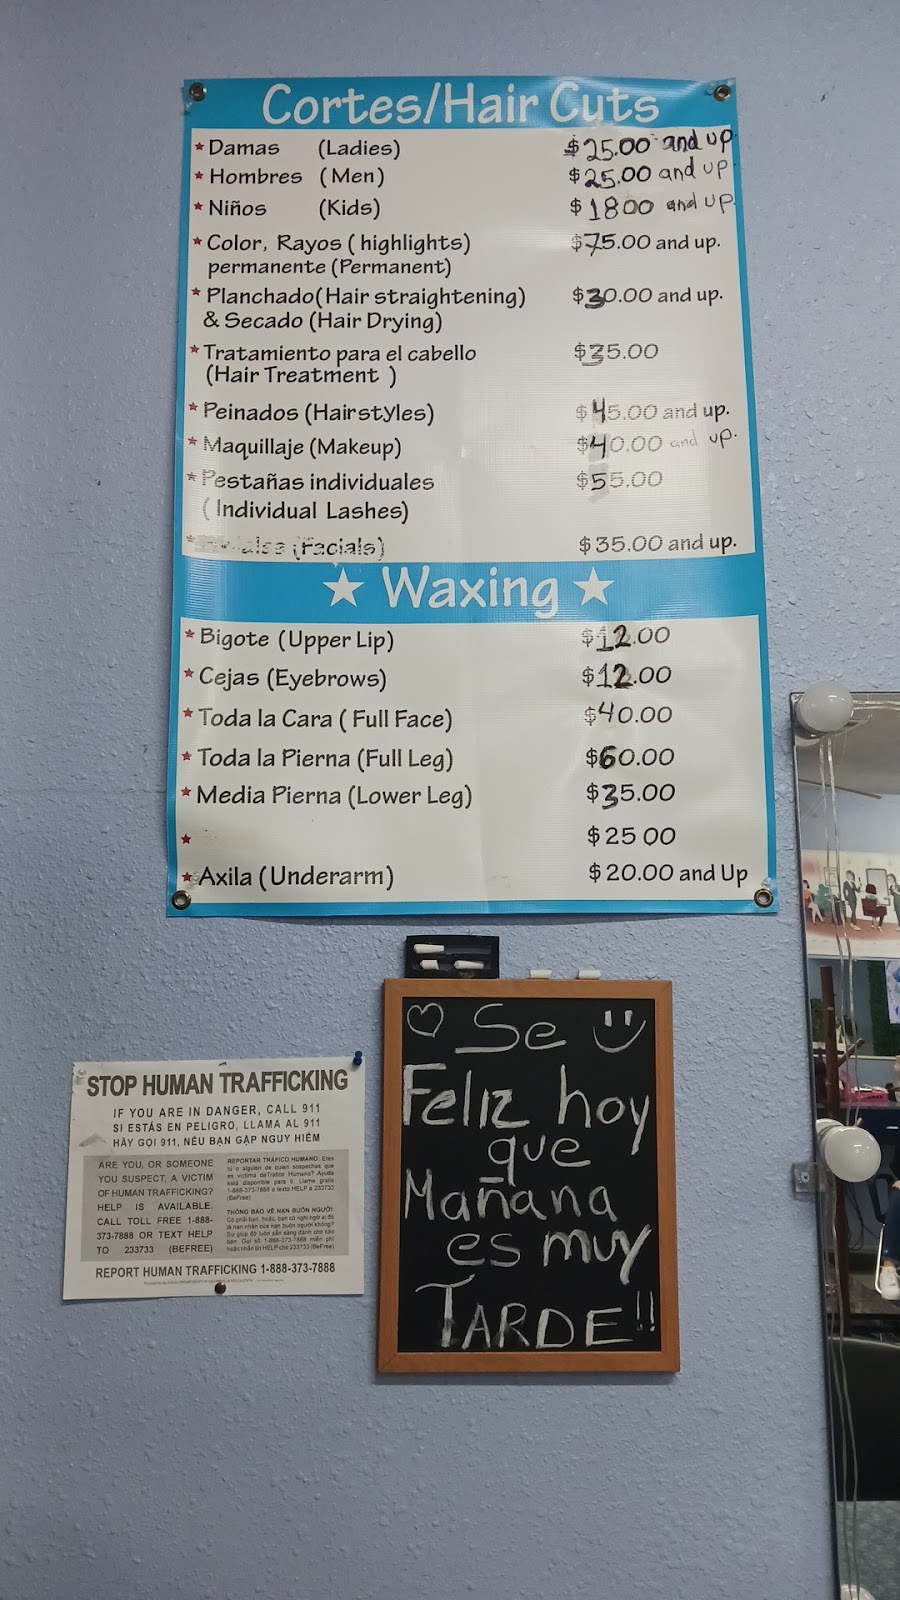 Cortes/Hair Cuts
Damas (Ladies) $25.00 and up.
Hombres (Men) $25.00 and up.
Niños (Kids) $1800 and up.
Color, Rayos (highlights) $75.00 and up.
permanente (Permanent)
Planchado(Hair straightening) $30.00 and up.
& Secado (Hair Drying)
Tratamiento para el cabello $35.00
(Hair Treatment )
Peinados (Hairstyles) $45.00 and up.
Maquillaje (Makeup) $40.00 and up.
Pestañas individuales $55.00
(Individual Lashes)
(Facials) $35.00 and up.
Waxing
Bigote (Upper Lip) $12.00
Cejas (Eyebrows) $12.00
Toda la Cara (Full Face) $40.00
Toda la Pierna (Full Leg) $60.00
Media Pierna (Lower Leg) $35.00
$25 00
Axila (Underarm) $20.00 and Up
Se
Feliz hoy
que
Mañana
es muy
TARDE!!
STOP HUMAN TRAFFICKING
IF YOU ARE IN DANGER, CALL 911
SI ESTÁS EN PELIGRO, LLAMA AL 911
HÃY GỌI 911, NẾU BẠN GẶP NGUY HIỂM
ARE YOU, OR SOMEONE
YOU SUSPECT, A VICTIM
OF HUMAN TRAFFICKING?
HELP IS AVAILABLE.
CALL TOLL FREE 1-888-
373-7888 OR TEXT HELP
TO 233733 (BEFREE)
REPORTAR TRÁFICO HUMANO: Eres
tú o alguien de quien sospechas que
es víctima deTráfico Humano? Ayuda
está disponible para ti. Llame gratis
1-888-373-7888 o texto HELP a 233733
(BeFree)
THÔNG BÁO VỀ NẠN BUÔN NGƯỜI:
REPORT HUMAN TRAFFICKING 1-888-373-7888